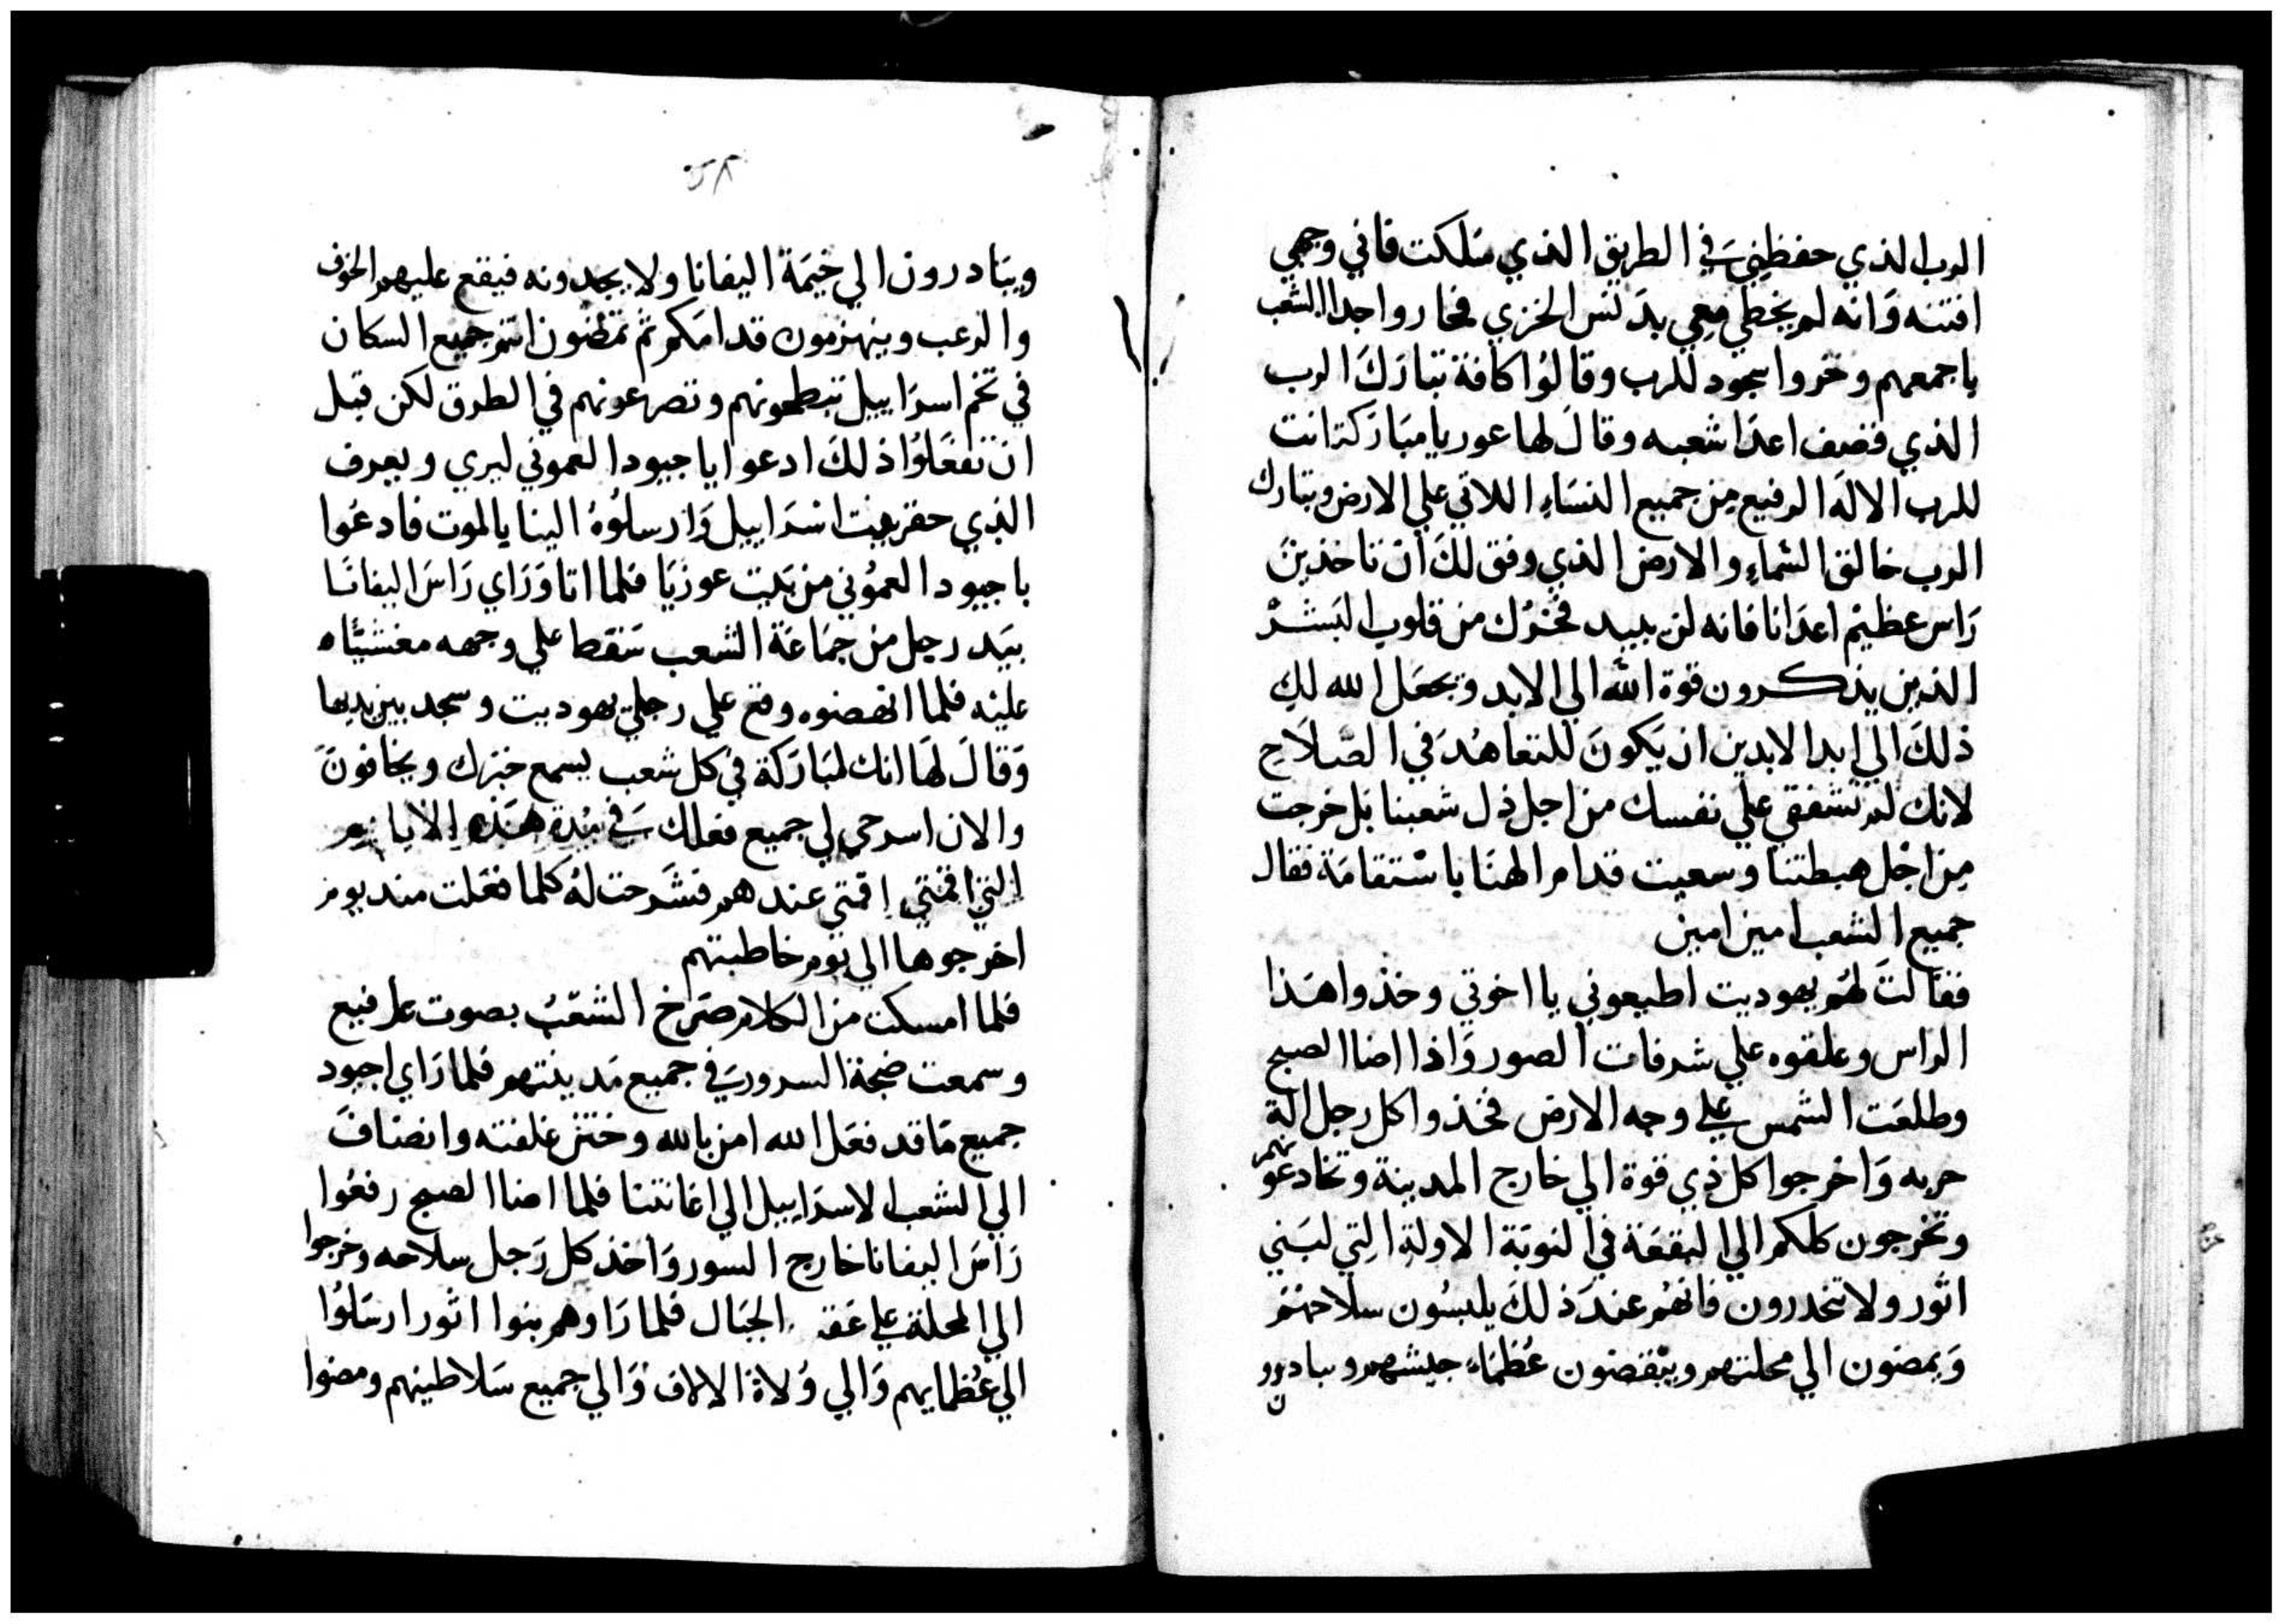 الرب الذي حفظني في الطريق الذي سلكت فاني وجهي
افتنه وانه لم يخطي معي بدنس الخزي فحاروا جدا الشعب
باجمعهم وخروا سجود للرب وقالوا كافة تبارك الرب
الذي اعدا شعبه وقال لها عوريا مباركة انت
للرب الاله الرفيع من جميع النساء اللاتي علي الارض وتبارك
الرب خالق الشماء والارض الذي وفق لك ان تاخذين
راس عظيم اعدانا فانه لن يبيد فخرك من قلوب البشر
الذين يذكرون قوة الله الي الابد ويجعل الله لك
ذلك الي ابدا لابدين ان يكون للتعاهد في الصلاح
لانك لم تشفقي علي نفسك من اجل ذل شعبنا بل خرجت
من اجل هبطتنا وسعيت قدام الهنا باستقامة فقال
جميع الشعب امين امين
فقالت لهم يهوديت اطيعوني يا اخوتي وخذوا هذا
الراس وعلقوه علي شرفات الصور واذا اضا الصبح
وطلعت الشمس علي وجه الارض فخذوا كل رجل الة
حربه واخرجوا كل ذي قوة الي خارج المدينة وتخادعونهم
وتخرجون كلكم الي البقعة في النوبة الاولة التي لبني
اثور ولا تنحدرون فانهم عند ذلك يلبسون سلاحهم
ويمضون الي محلتهم وينقضون عظماء جيشهم ويبادرون
٥٨
ويتادرون الي خيمة اليفانا ولا يجدونه فيقع عليهم الخوف
والرعب وينهزمون قدامكم ثم تمضون انتم جميع السكان
في تخم اسراييل تبطحونهم وتصرعونهم في الطرق لكن قبل
ان تفعلوا ذلك ادعوا ياجيود العموني ليري ويعرف
الذي حقر بيت اسراييل وارسلوه الينا يالموت فادعوا
باجيود العموني من بيت عوزيا فلما اتا وراي راس اليفانا
بيد رجل من جماعة الشعب سقط علي وجهه مغشيا
عليه فلما انهضوه وقع علي رجلي يهوديت وسجد بين يديها
وقال لها انك لمباركة في كل شعب يسمع خبرك ويخافون
والان اسرحي لي جميع فعالك في مدة هذه الايام
التي اقمتي اقمتي عندهم فشرحت له كلما فعلت مند يوم
اخرجوها الي يوم خاطبتهم
فلما امسكت من الكلام صرخ الشعب بصوت رفيع
وسمعت ضجة السرور في جميع مدينتهم فلما راي اجيود
جميع ما قد فعل الله امن بالله وختن غلفته وانضاف
الي الشعب لاسراييل الي اغانتنا فلما اضا الصبح رفعوا
راس اليفانا خارج السور واخذ كل رجل سلاحه وخرجوا
الي المحلة علي الجبال فلما راوهم بنوا اثور ارسلوا
الي عظمايهم والي ولاة الالاف والي جميع سلاطينهم ومضوا